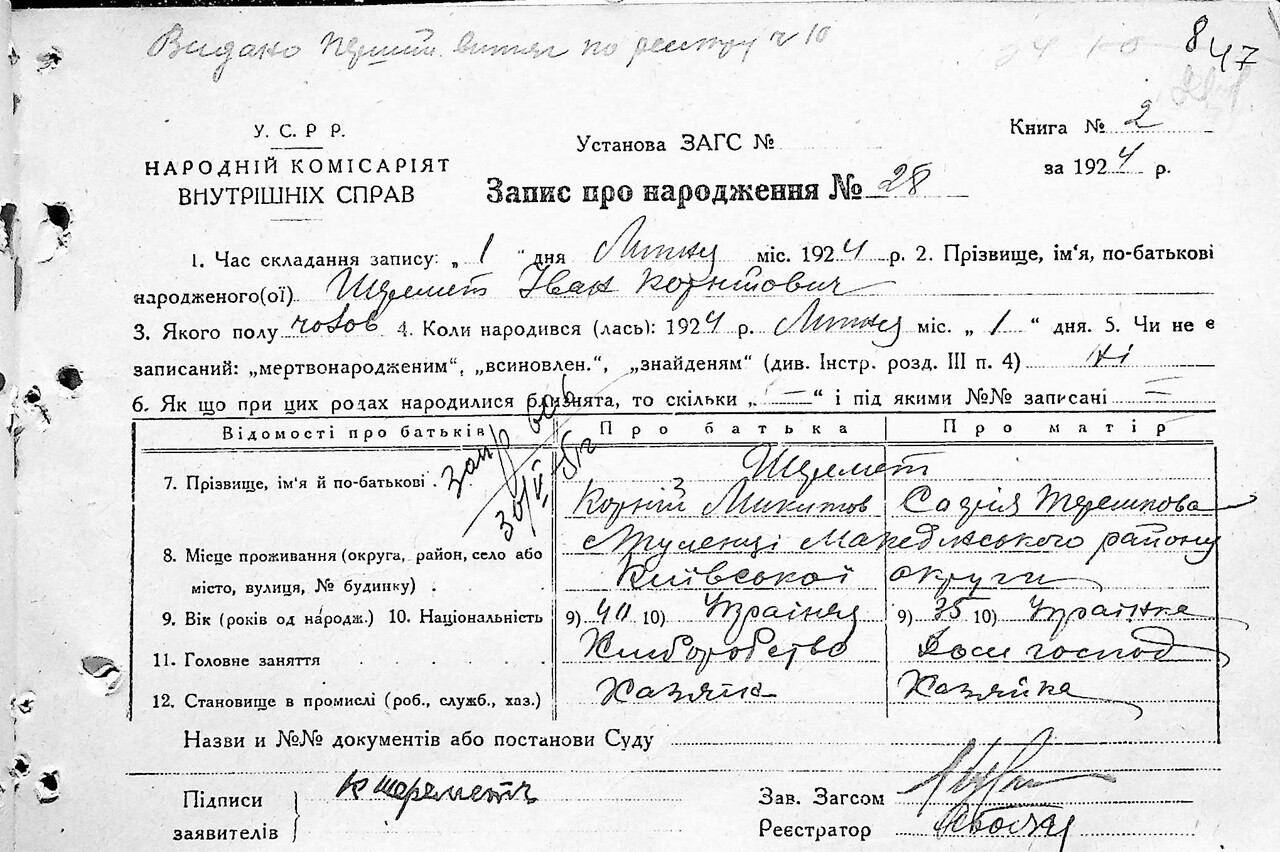 Видано перший витяг по реєстру ч 10
847
У. С. Р Р.
НАРОДНІЙ КОМІСАРІЯТ
ВНУТРІШНІХ СПРАВ
Установа ЗАГС №
Запис про народження № 28
Книга № 2
за 1924 р.
1. Час складання запису: „ 1 " дня Липня міс. 1924 р. 2. Прізвище, ім'я, по-батькові
народженого(ої) Шеремет Іван Корнійович
3. Якого полу чолов 4. Коли народився (лась): 1924 р. Липня міс. „ 1 “ дня. 5. Чи не є
записаний: „мертвонародженим“, „всиновлен.“, „знайденям“ (див. Інстр. розд. III п. 4) ні
6. Як що при цих родах народилися близнята, то скільки „ — “ і під якими №№ записані —
Відомості про батьків Про батька Про матір
Шеремет
7. Прізвище, ім'я й по-батькові . Корній Микитов Софія Терешкова
8. Місце проживання (округа, район, село або Макарівського району
місто, вулиця, № будинку) . Київської округи
9. Вік (років од народж.) 10. Національність 9) 40 10) Українец 9) 35 10) Українка
11. Головне заняття Хліборобство Дом господ
12. Становище в промислі (роб., служб., хаз.) Хазяїн Хазяйка
Назви и №№ документів або постанови Суду
Підписи
заявителів
К Шереметъ
Зав. Загсом
Реєстратор